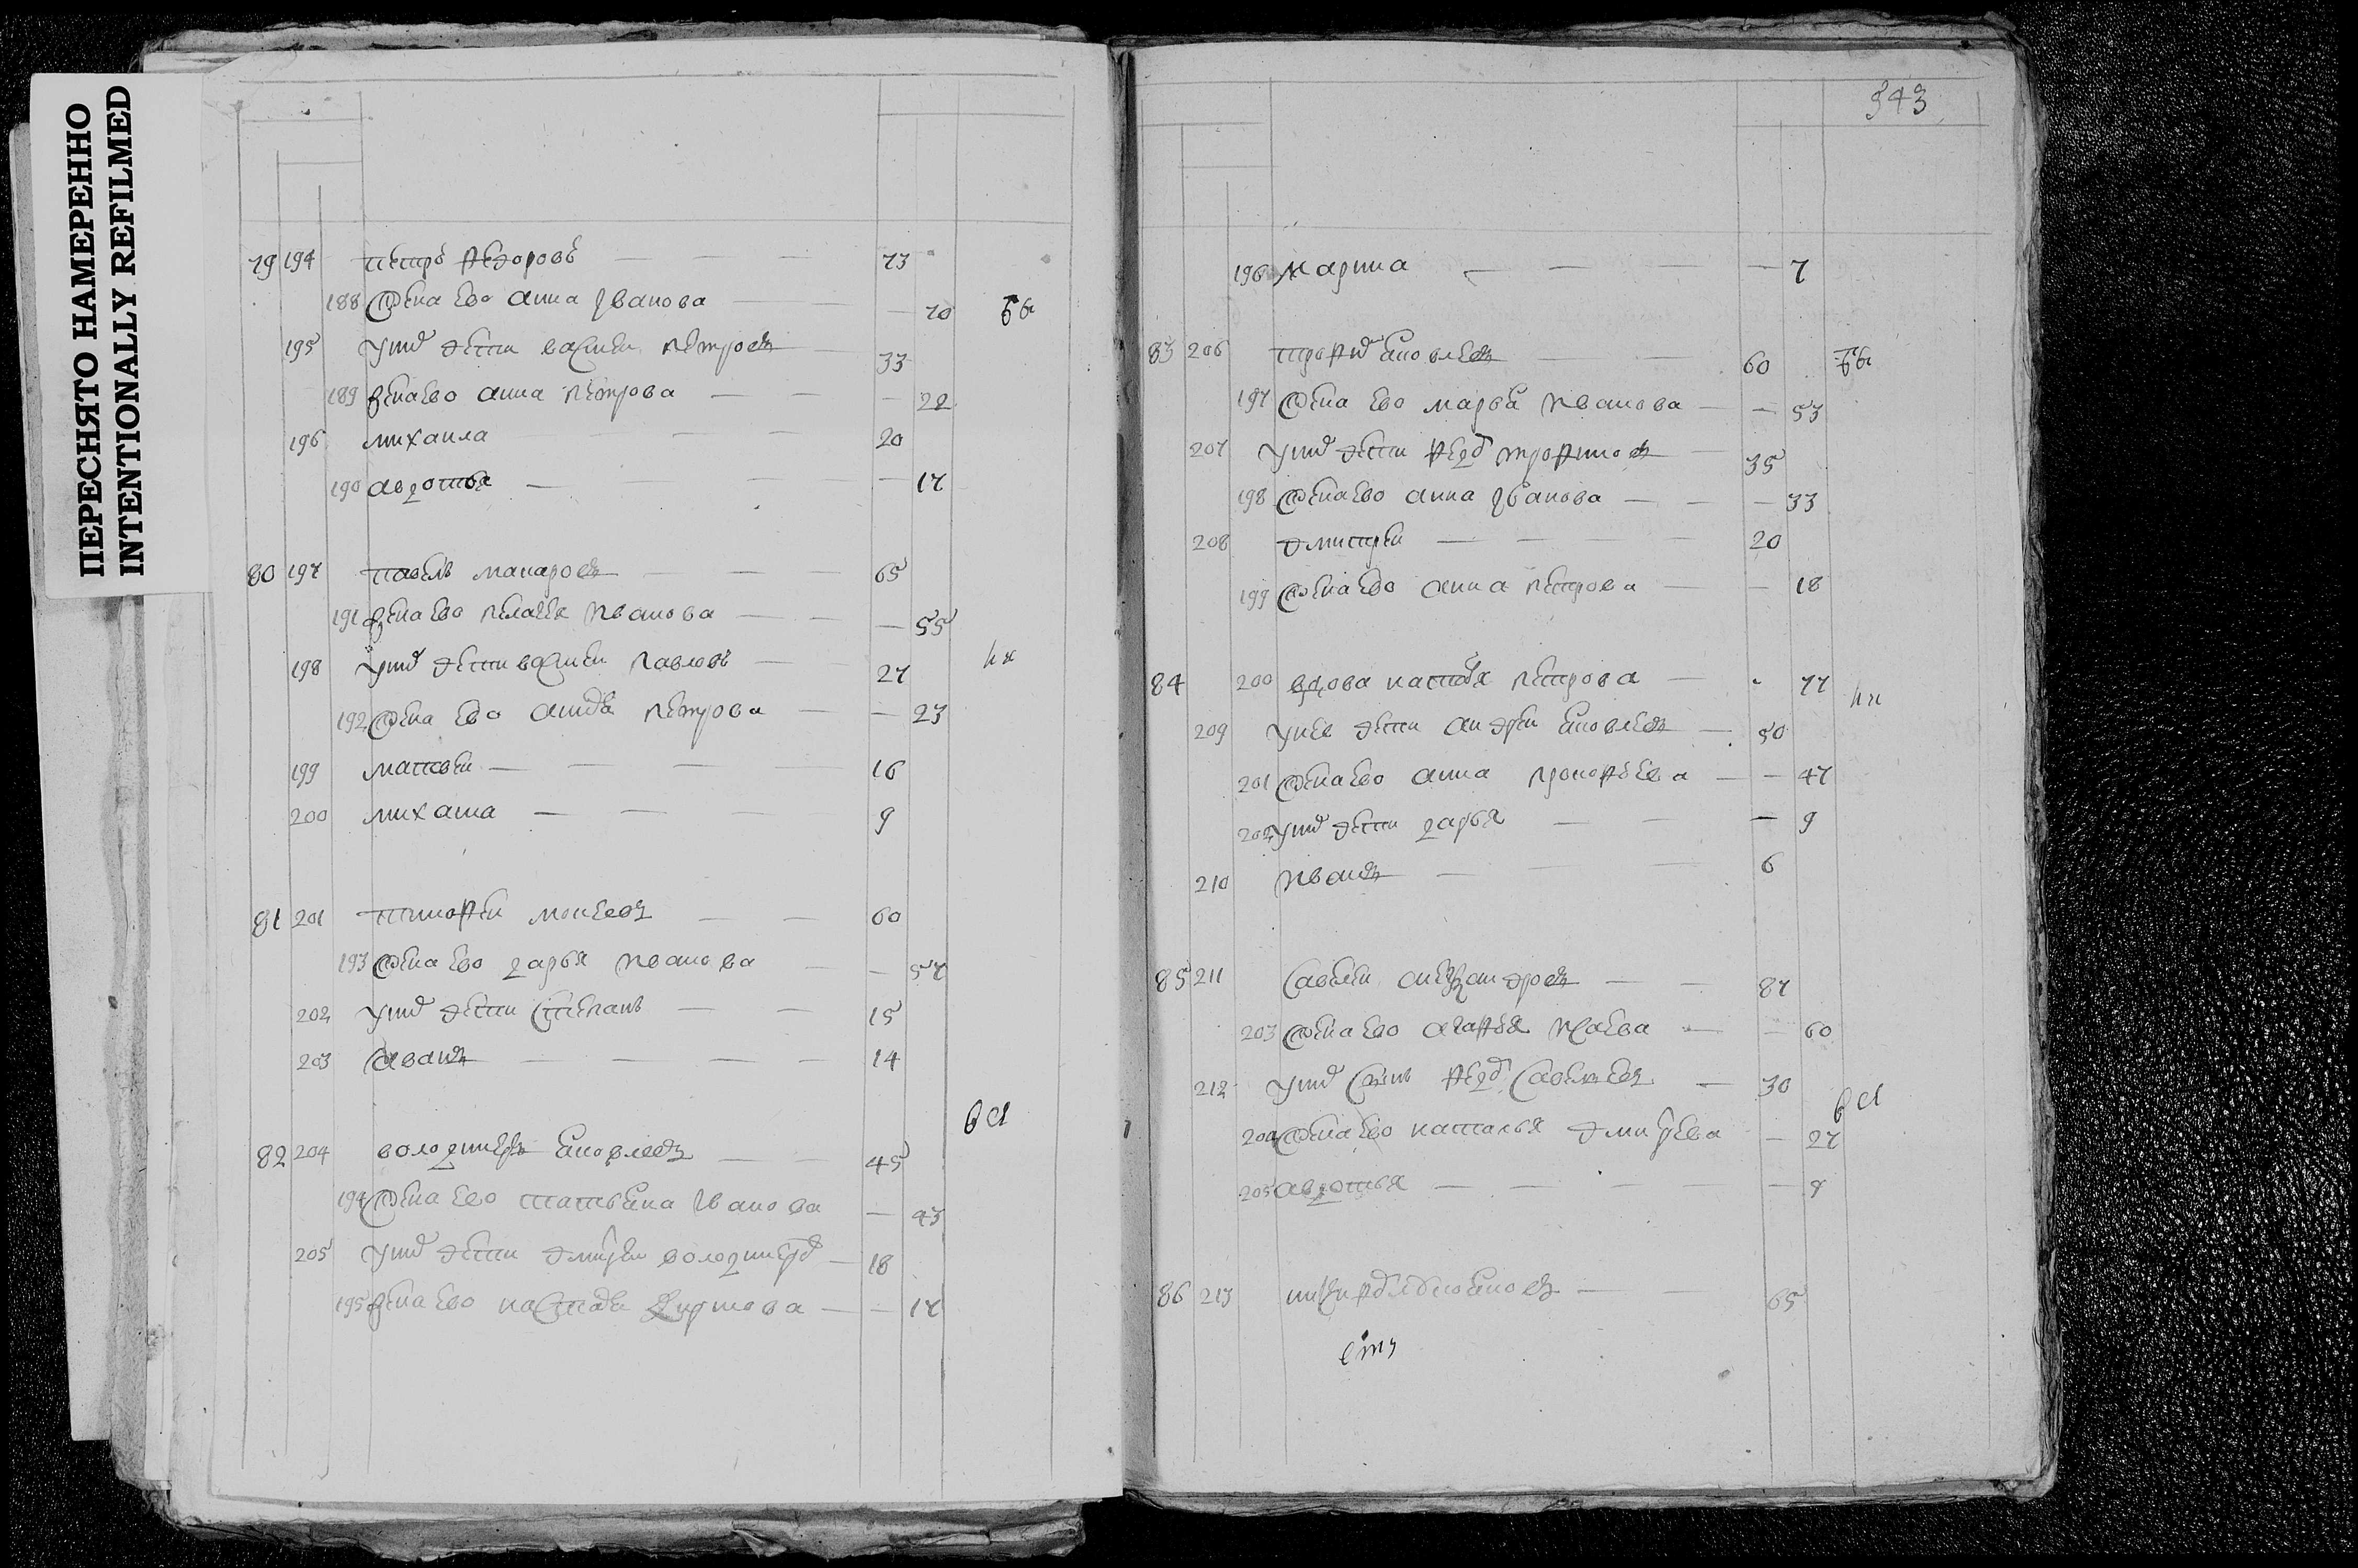 ПЕРЕСНЯТО НАМЕРЕННО
INTENTIONALLY REFILMED
79 194 петръ федоровъ 73
188 жена ево анна иванова 70
195 у них дети василеи петровъ 33
189 жена ево анна петрова 22
196 михаила 20
190 авдотья 17
80 197 павелъ макаровъ 65
191 жена ево пелагея иванова 55
198 у них дети василеи павловъ 27
192 жена ево петрова 23
199 матвеи 16
200 михаила 9
81 201 тимофеи 60
193 жена ево дарья иванова 57
202 у них дети степанъ 15
203 иванъ 14
82 204 володимеръ яковлевъ 45
194 жена ево татьяна иванова 43
205 у них дети дмитреи володимеровъ 18
195 жена ево 17
543
196 марина 7
83 206 трофим яковлевъ 60
197 жена ево марья иванова 53
207 у них дети федор трофимовъ 35
198 жена ево анна иванова 33
208 дмитреи 20
199 жена ево анна петрова 18
84 200 вдова настасья петрова 77
209 у нее дети андреи яковлевъ 50
201 жена ево анна прокофьева 47
202 у них дети дарья 9
210 иванъ 6
85 211 савелеи александровъ 87
203 жена ево агафья исаева 60
212 у них сынъ федор савельевъ 30
204 жена ево наталья дмитрева 27
205 авдотья
86 213 65